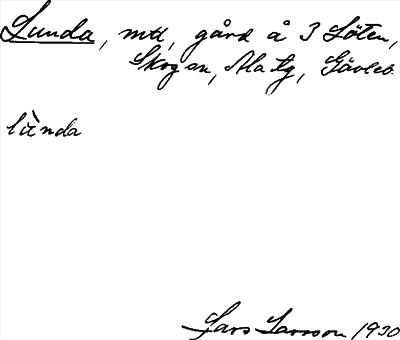 Lunda, mtl, gård å 3 Löten,
Skogen, Ala tg, Gävleb.
lùnda
Lars Larsson 1930